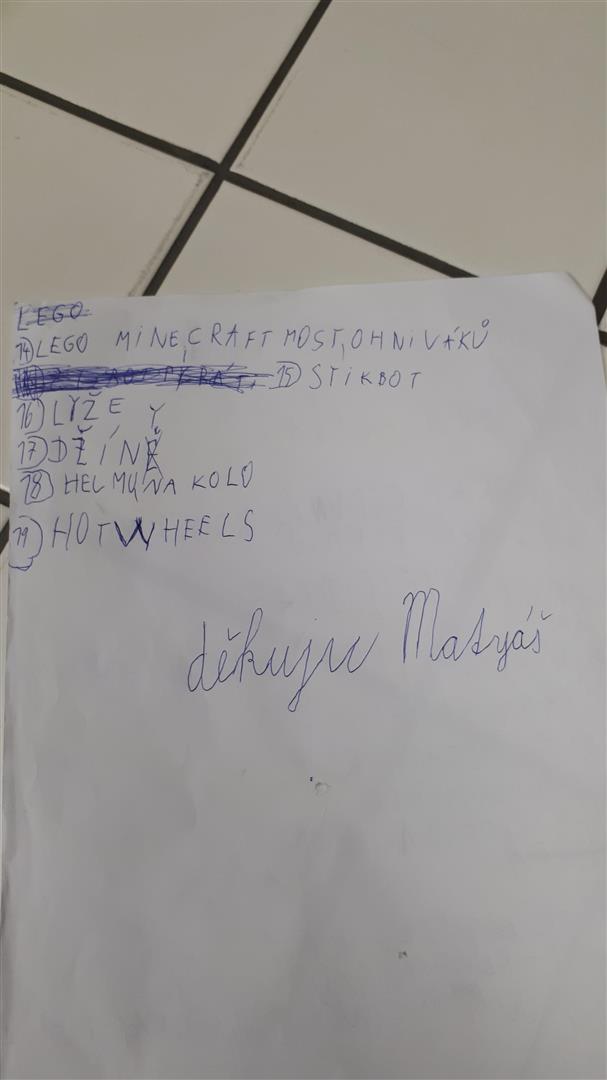 LEGO
14) LEGO MINECRAFT MOST OHNIVÁKŮ
15) STIKBOT
16) LYŽE
17) DŽÍNY
18) HELMU NA KOLO
19) HOT WHEELS
děkuju Matyáš